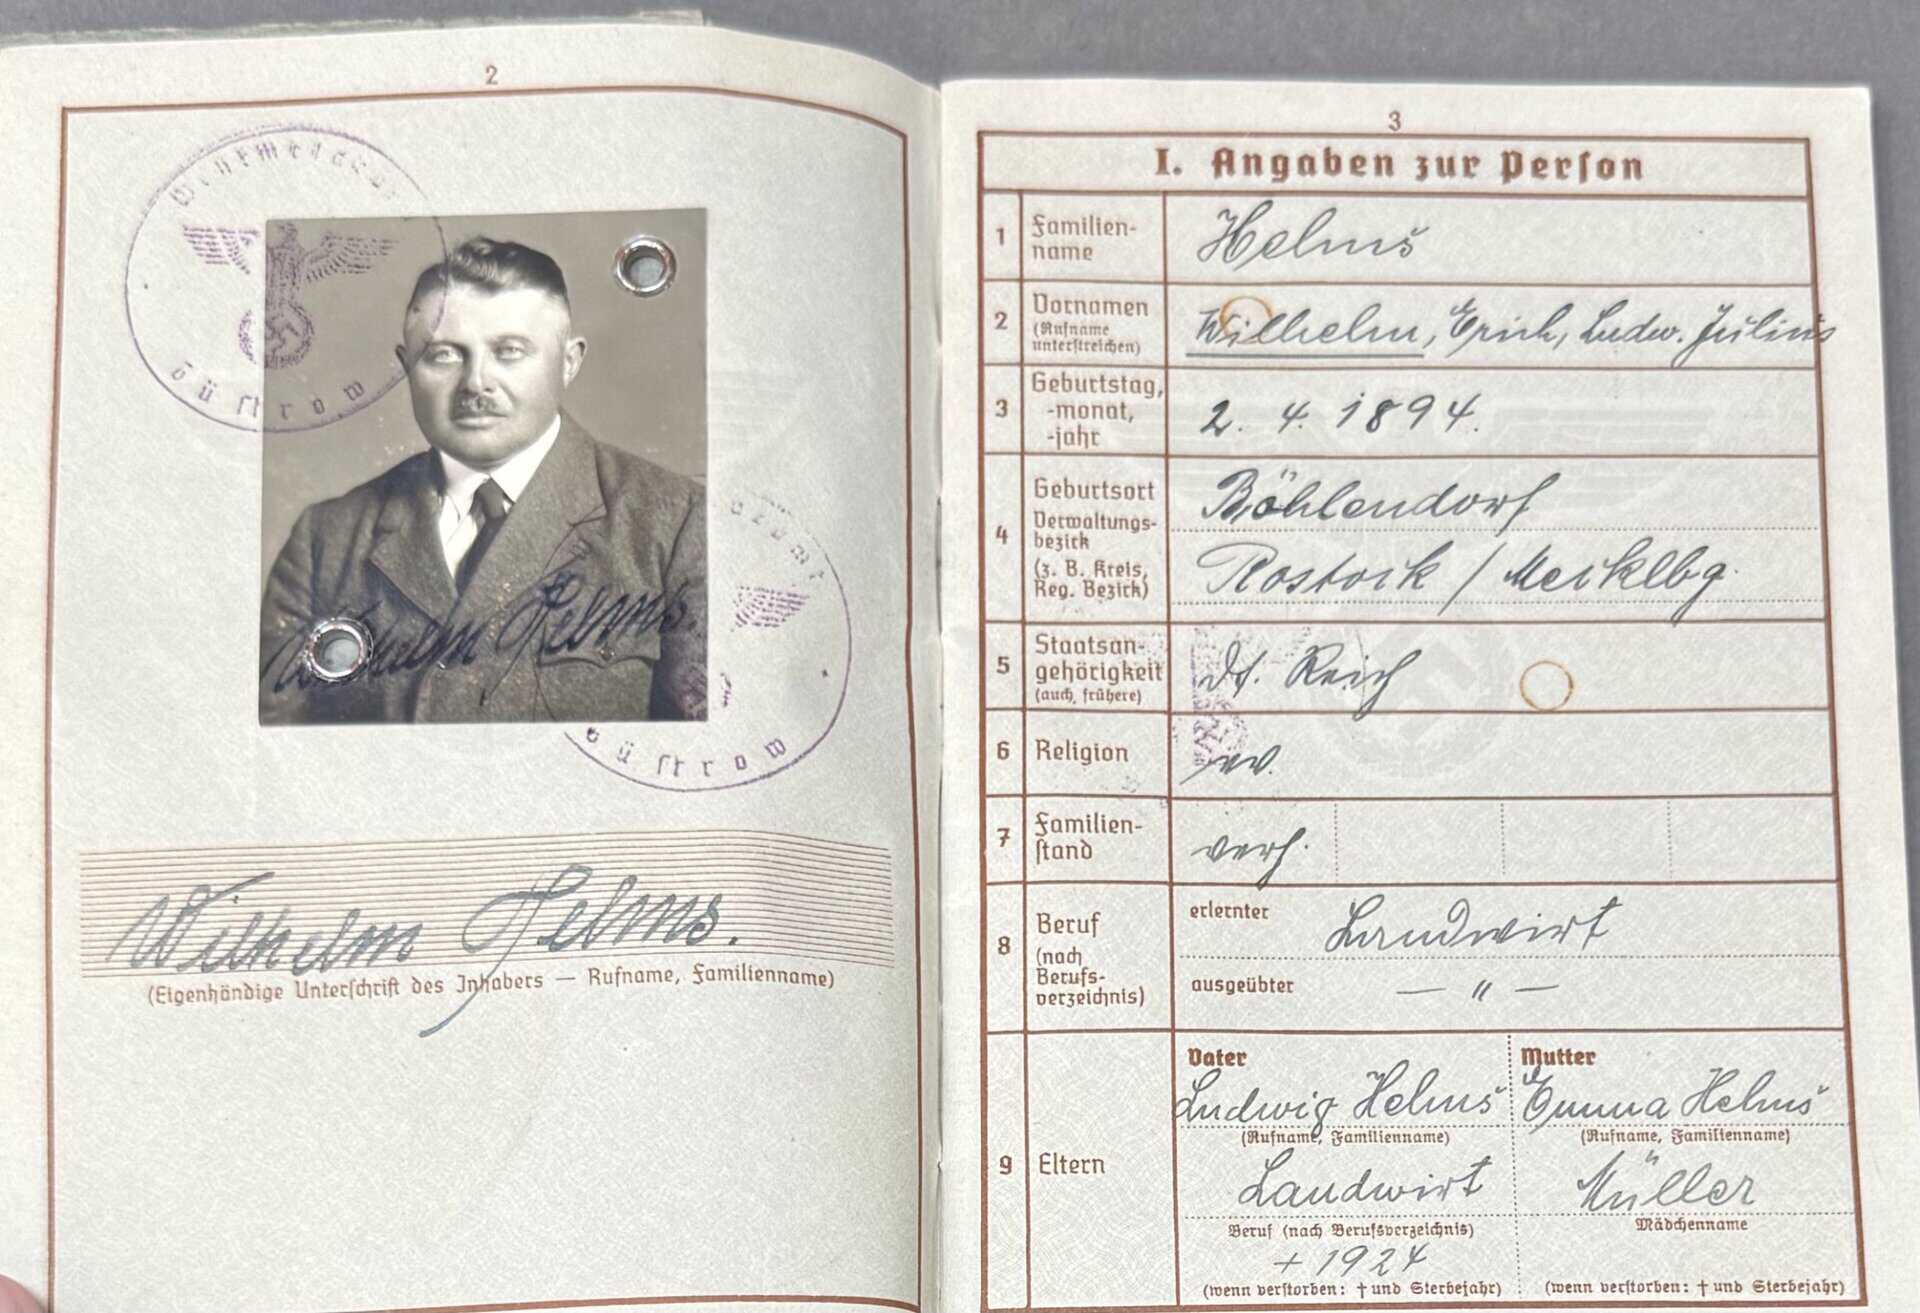 2
Wehrmeldeamt
Güstrow
Wilhelm Helms.
Güstrow
Wilhelm Helms.
(Eigenhändige Unterschrift des Inhabers — Rufname, Familienname)
3
I. Angaben zur Person
1 Familien-
name
Helms
2 Vornamen
(Rufname
unterstreichen)
Wilhelm, Erich, Ludw. Julius
3 Geburtstag,
-monat,
-jahr
2. 4. 1894.
4 Geburtsort
Verwaltungs-
bezirk
(z. B. Kreis,
Reg. Bezirk)
Böhlendorf
Rostock / Mecklbg.
5 Staatsan-
gehörigkeit
(auch frühere)
Dt. Reich
6 Religion
ev.
7 Familien-
stand
verh.
8 Beruf
(nach
Berufs-
verzeichnis)
erlernter Landwirt
ausgeübter — " —
9 Eltern
Vater
Ludwig Helms
(Rufname, Familienname)
Landwirt
Beruf (nach Berufsverzeichnis)
+ 1924
(wenn verstorben: † und Sterbejahr)
Mutter
Emma Helms
(Rufname, Familienname)
Müller
Mädchenname
(wenn verstorben: † und Sterbejahr)